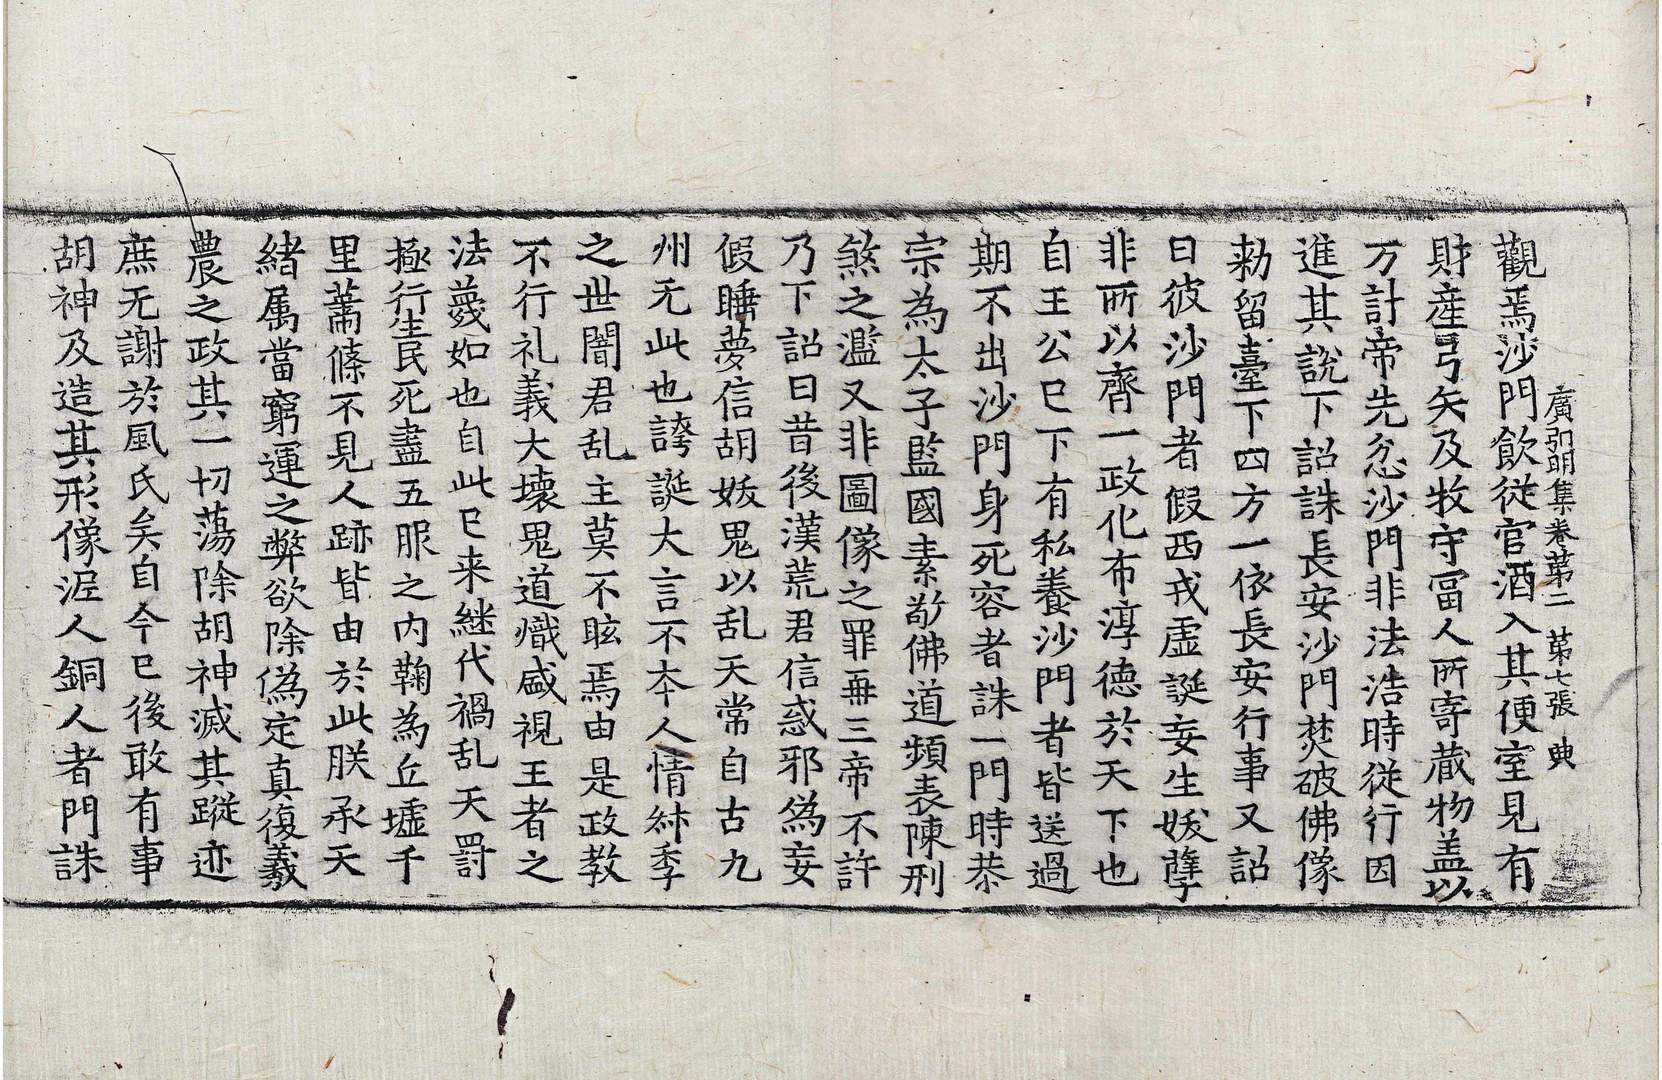 廣弘明集卷第二　第七張　典
觀焉沙門飲従官酒入其便室見有
財産弓矢及牧守冨人所寄蔵物盖以
万計帝先忿沙門非法浩時従行因
進其說下詔誅長安沙門焚破佛像
勑留臺下四方一依長安行事又詔
曰彼沙門者假西戎虛誕妄生妖孽
非所以齊一政化布淳德於天下也
自王公已下有私養沙門者皆送過
期不出沙門身死容者誅一門時恭
宗為太子監國素敬佛道頻表陳刑
煞之濫又非圖像之罪再三帝不許
乃下詔曰昔後漢荒君信惑邪偽妄
假睡夢信胡妖鬼以乱天常自古九
州无此也誇誕大言不夲人情𠦑季
之世闇君乱主莫不眩焉由是政教
不行礼義大壞鬼道熾盛視王者之
法蔑如也自此已来継代禍乱天罸
極行生民死盡五服之內鞠為丘墟千
里蕭條不見人跡皆由於此朕承天
緒属當窮運之弊欲除偽定真復羲
農之政其一切蕩除胡神滅其蹤迹
庶无謝於風氏矣自今已後敢有事
胡神及造其形像泥人銅人者門誅